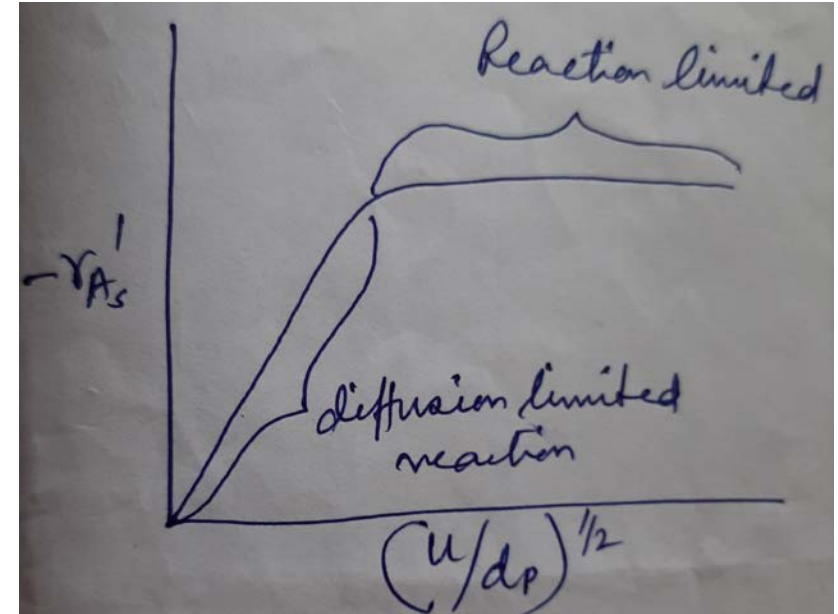 Reaction limited
-rAs'
diffusion limited
reaction
(U/dp)^1/2